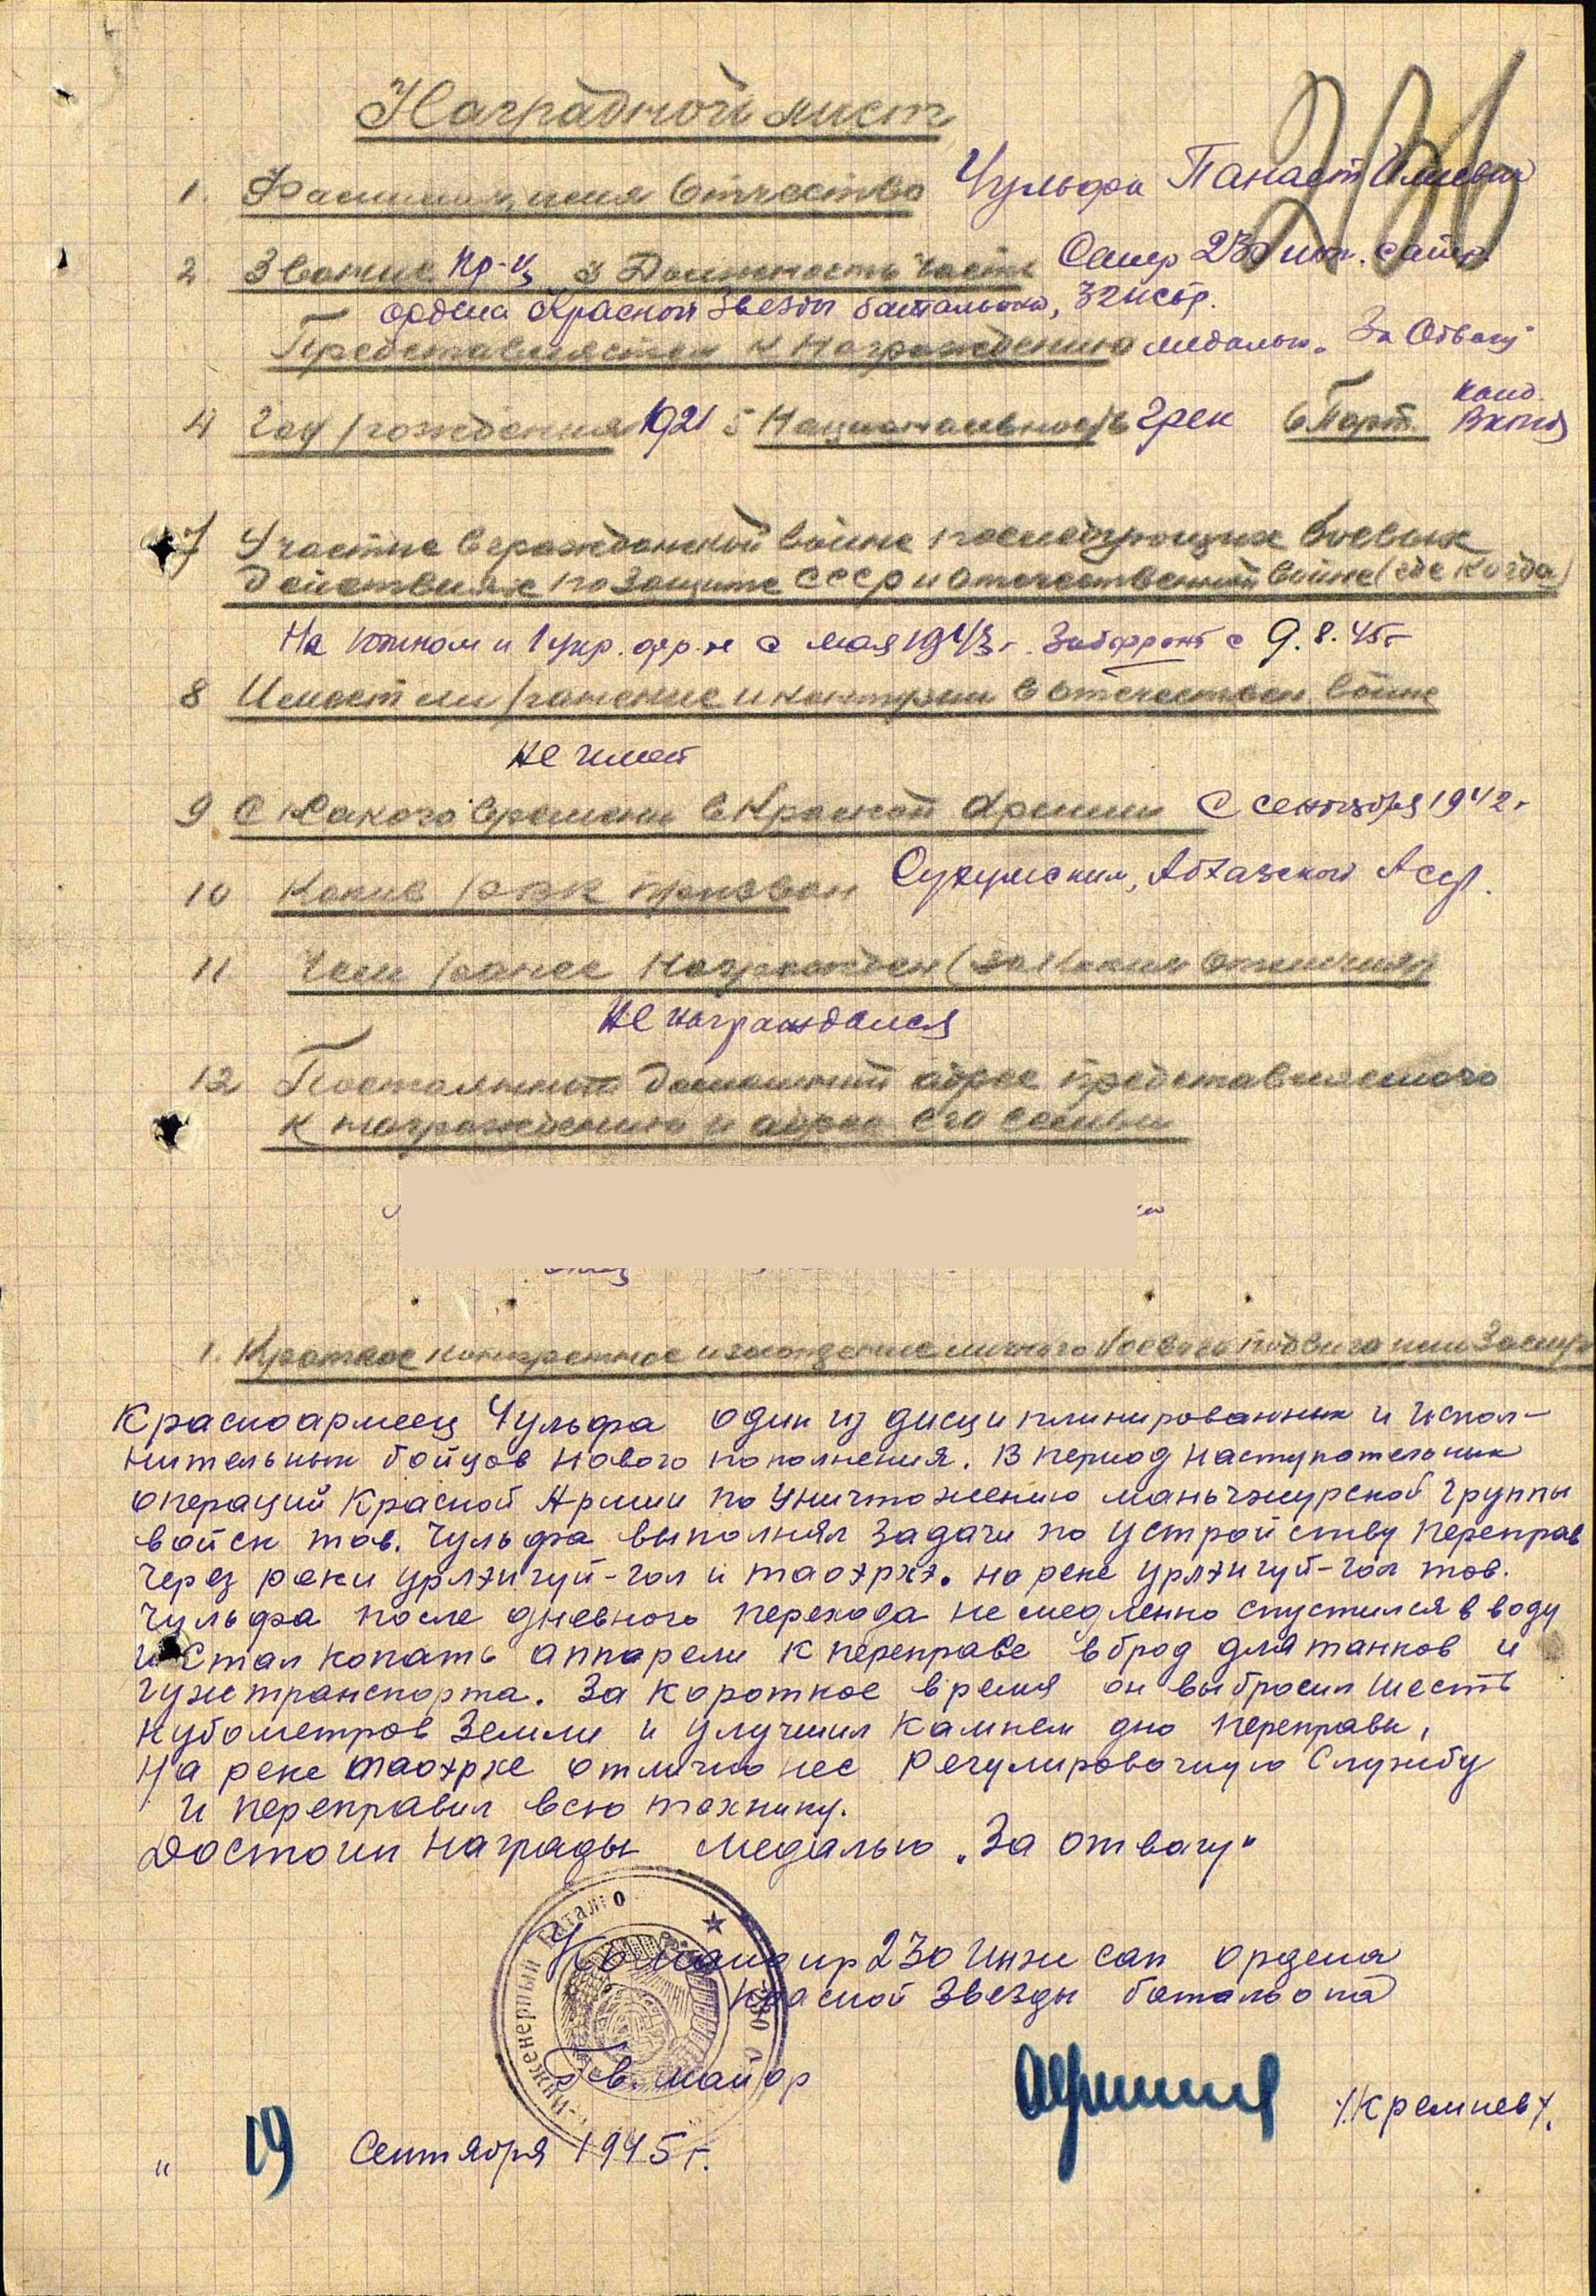 Наградной лист
236
1. Фамилия, имя Отчество Чульфа Панаст
2 Звание Кр-ц 3 Должность часть Сапер 230 инж. сапер.
ордена Красной Звезды батальона, 32 исбр.
Представляется к награждению медалью „За Отвагу"
4 Год рождения 1921 5 Национальность Грек 6 Парт. канд. ВКП(б)
7 Участие в гражданской войне последующих боевых
действиях по защите СССР и отечественной войне (где когда)
На Южном и 1 укр. фр-те с мая 1943 г. Забфронт с 9.8.45 г
8 Имеет ли ранение и контузии в отечествен. войне
не имеет
9 С какого времени в Красной Армии С сентября 1942 г
10 Каким рвк призван Сухумским, Абхазской Асср.
11 Чем ранее награжден (за какие отличия)
не награждался
12 Постоянный домашний адрес представляемого
к награждению и адрес его семьи
1. Краткое конкретное изложение личного боевого подвига или Заслуг
Красноармеец Чульфа один из дисциплинированных и испол-
нительных бойцов нового пополнения. В период наступательных
операций Красной Армии по уничтожению маньчжурской группы
войск тов. Чульфа выполнял задачи по устройству переправ
через реки Урлэнгуй-гол и на реке Урлэнгуй-гол тов.
Чульфа после дневного перехода немедленно спустился в воду
и стал копать аппарели к переправе вброд для танков и
гужтранспорта. За короткое время он выбросил шесть
кубометров земли и улучшил камнем дно переправы,
На реке отлично нес регулировочную службу
и переправил всю технику.
Достоин награды медалью „За отвагу"
Командир 230 Инж сап ордена
Красной Звезды батальона
Гв. майор /Кремнев/.
„ 19 Сентября 1945 г.